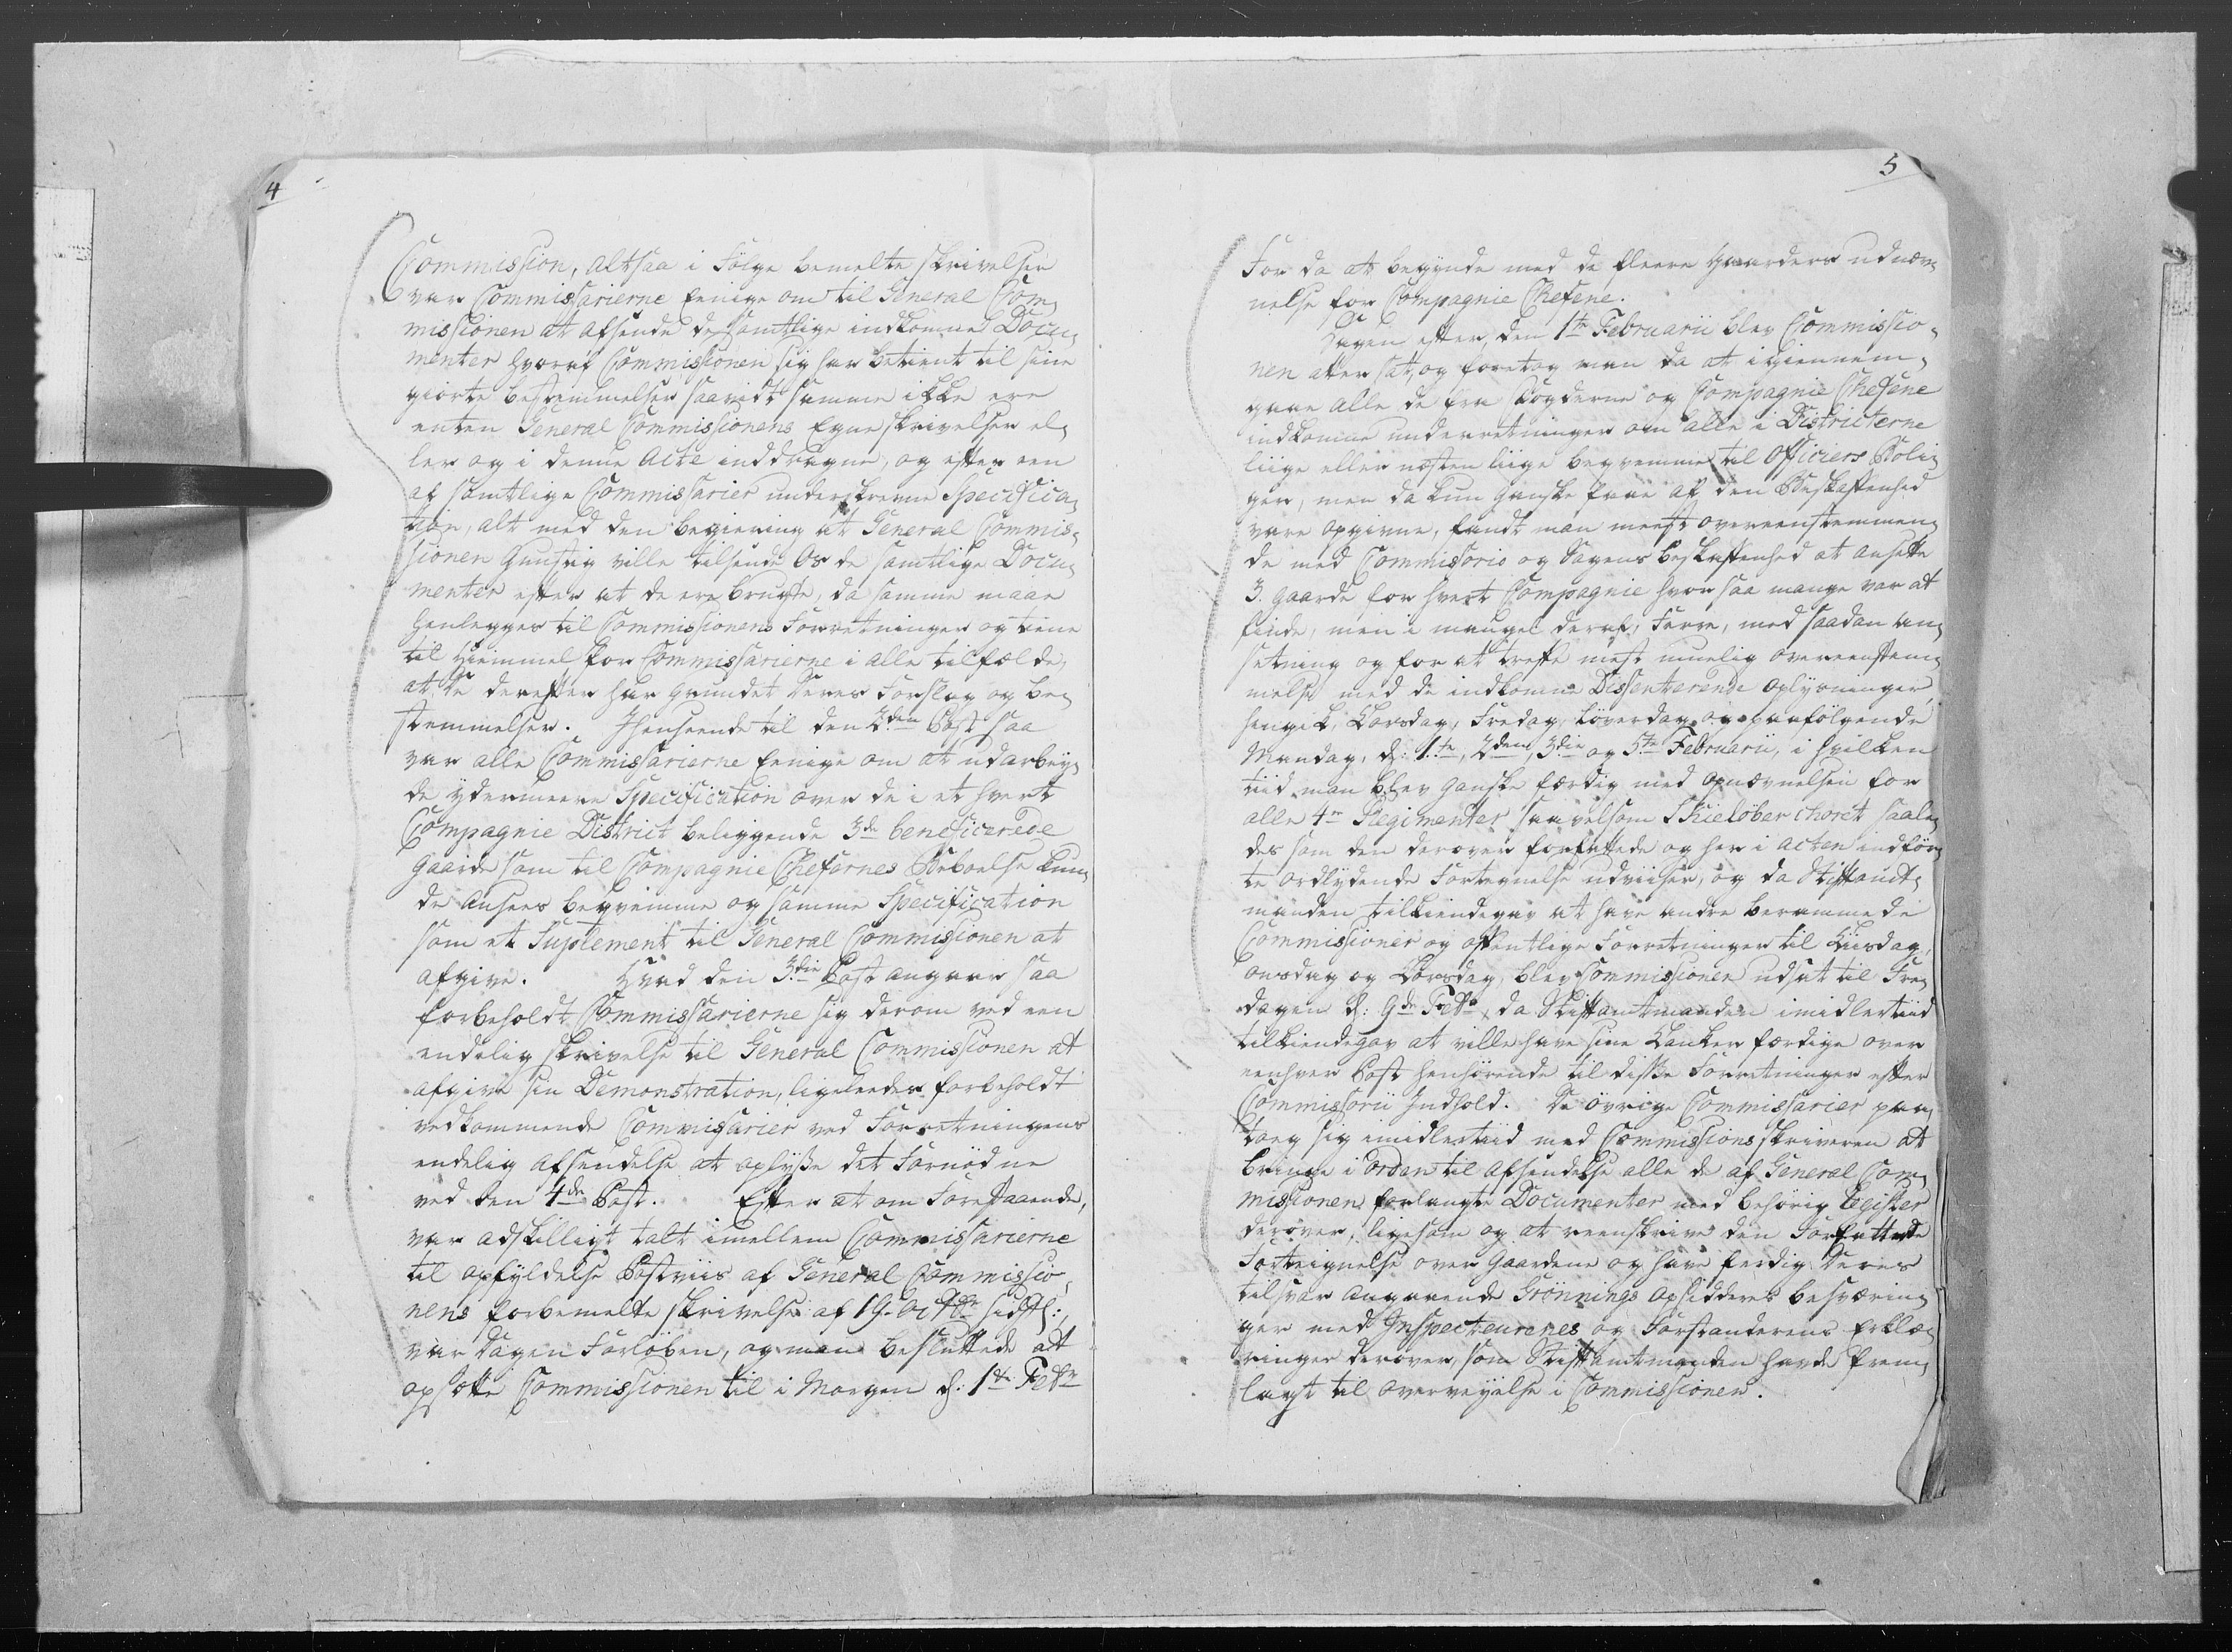 4
Commission, altsaa i Følge bemelte skrivelser
var Commissarierne Eenige om til General Com¬
missionen at afsende de samtlige indkomne Docu¬
menter hvoraf Commissionen sig har betient til sine
giorte bestemmelser saavidt samme ikke ere
enten General Commissionens Egne skrivelser el¬
ler og i denne Acte inddragne, og efter een
af samtlige Commissarier underskrevne Specifica¬
tion, alt med den begiering at General Commis¬
sionen Gunstig ville tilsende Os de samtlige Docu¬
menter efter at de ere brugte, da samme maae
henlegges til Commissionens Forretninger og tiene
til Hiemmel for Commissarierne i alle tilfælde,
at De derefter har grundet Deres Forslag og be¬
stemmelser. Ihenseende til den 2den Post saa
var alle Commissarierne Eenige om at udarbey¬
de ydermeere Specification over de i et hvert
Compagnie District beliggende 3de beneficerede
Gaarde som til Compagnie Chefernes Beboelse kun¬
de Ansees beqvemme og samme Specification
som et Suplement til General Commissionen at
afgive. Hvad den 3die Post angaar saa
forbeholdt Commissarierne sig derom ved een
endelig skrivelse til General Commissionen at
afgive sin Demonstration, ligeledes forbeholdt
vedkommende Commissarier ved Forretningens
endelig Afsendelse at oplyse det Fornødne
ved den 4de Post. Efter at om Forestaaende,
var adskilligt talt imellem Commissarierne
til opfyldelse Postviis af General Commissio¬
nens forbemelte skrivelse af 19 Octbr sidstl:,
var Dagen Forløben, og man besluttede at
opsætte Commissionen til i Morgen d: 1te Febr
5
For da at begynde med de fleere Gaarders udnæv¬
nelse for Compagnie Chefene.
Dagen efter, den 1te Februarii blev Commissio¬
nen atter sat, og foretog man da at igiennem¬
gaae alle de fra Fogderne og Compagnie Chefene
indkomne underretninger om alle i Districterne
liige eller næsten liige beqvemme til Officiers Boli¬
ger, men da kun ganske faae af den Beskaffenhed
vare opgivne, fandt man meest overeenstemmen¬
de med Commissorio og Sagens beskaffenhed at ansætte
3. gaarde for hvert Compagnie hvor saa mange var at
finde, men i mangel deraf, Færre, med saadan An¬
sætning og for at treffe mest muelig overeenstem¬
melse med de indkomne Dissenterende Oplysninger,
hengik, Torsdag, Fredag, Løverdag, og paafølgende
Mandag, d: 1te, 2den, 3die og 5te Februarii, i hvilken
tiid man blev ganske færdig med opnævnelsen for
alle 4re Regimenter saavelsom Skieløber Choret saale¬
des som den derover forfattede og her i Acten indfør¬
te ordlydende Fortegnelse udviiser, og da Stiftamt¬
manden tilkiendegav at have andre berammede
Commissioner og offentlige Forretninger til Tiisdag,
onsdag og Torsdag, blev Commissionen udsat til Fre¬
dagen d: 9de Febr, da Stiftamtmanden imidlertiid
tilkiendegav at ville have sine Tanker færdige over
eenhver Post henhørende til disse Forretninger efter
Commissorii Indhold. De øvrige Commissarier paa¬
tog sig imidlertiid med Commissions skriveren at
bringe i orden til Afsendelse alle de af General Com¬
missionen forlangte Documenter med behørig Register
derover, ligesom og at reenskrive den Forfattede
Forteignelse over Gaardene og have ferdig Deres
tilsvar angaaende Grønnings Opsidderes besværin¬
ger med Inspecteurernes og Forstanderens Erklæ¬
ringer derover, som Stiftamtmanden havde Frem¬
lagt til overveyelse i Commissionen.